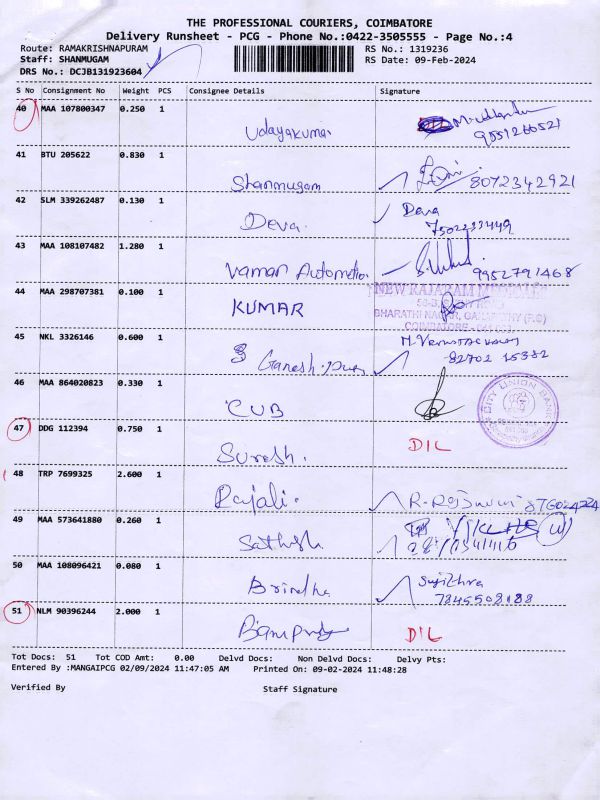 THE PROFESSIONAL COURIERS, COIMBATORE
Delivery Runsheet - PCG - Phone No.:0422-3505555 - Page No.:4
Route: RAMAKRISHNAPURAM RS No.: 1319236
Staff: SHANMUGAM RS Date: 09-Feb-2024
DRS No.: DCJB131923604
S No Consignment No Weight PCS Consignee Details Signature
40 MAA 107800347 0.250 1 Udayakumar 9551260521
41 BTU 205622 0.830 1 Shanmugam 8072342921
42 SLM 339262487 0.130 1 Deva. Deva
7502233449
43 MAA 108107482 1.280 1 Vaman Automation 9952791468
44 MAA 298707381 0.100 1 KUMAR NEW RAJARAM
BHARATHI NAGAR, GANAPATHY (P.O)
COIMBATORE
45 NKL 3326146 0.600 1 Ganesh
82702 15382
46 MAA 864020823 0.330 1 CUB CITY UNION BANK
47 DDG 112394 0.750 1 Suresh. DIL
48 TRP 7699325 2.600 1 Rajali.
49 MAA 573641880 0.260 1 Sathish
50 MAA 108096421 0.080 1 Brindha Sujithra
7845508188
51 NLM 90396244 2.000 1 DIL
Tot Docs: 51 Tot COD Amt: 0.00 Delvd Docs: Non Delvd Docs: Delvy Pts:
Entered By :MANGAIPCG 02/09/2024 11:47:05 AM Printed On: 09-02-2024 11:48:28
Verified By Staff Signature